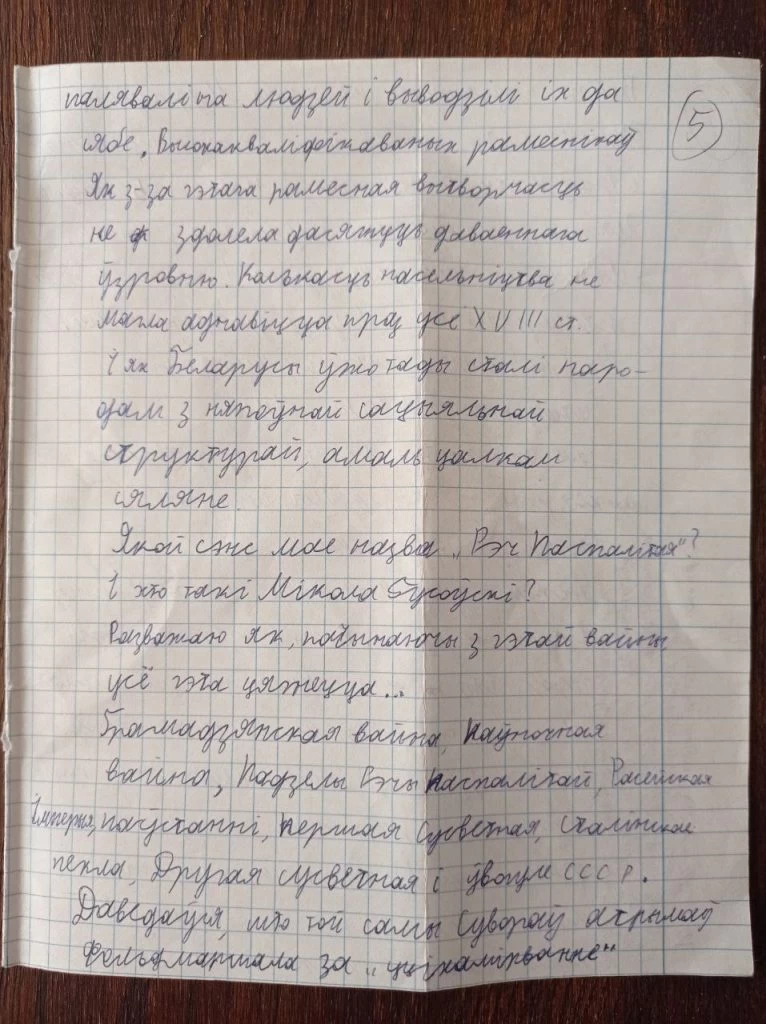 палявалі на людзей і выводзілі іх да
5
сябе, Высокакваліфікаваных рамеснікаў
Як з-за гэтага рамесная вытворчасць
не здолела дасягнуць даваеннага
ўзроўню. Колькасць насельніцтва не
магла аднавіцца праз усё XVIII ст.
І як Беларусы ўжо тады сталі наро-
дам з няпоўнай сацыяльнай
структурай, амаль цалкам
сяляне.
Якой сэнс мае назва „Рэч Паспалітая"?
І хто такі Мікола Гусоўскі?
Разважаю як, пачынаючы з гэтай вайны
усё гэта цягнецца...
Грамадзянская вайна, Паўночная
вайна, Падзелы Рэчы Паспалітай, Расейская
Імперыя, паўстанні, Першая сусветная, сталінскае
пекла, Другая сусветная і ўвогуле СССР.
Даведаўся, што той самы Сувораў атрымаў
Фельдмаршала за „